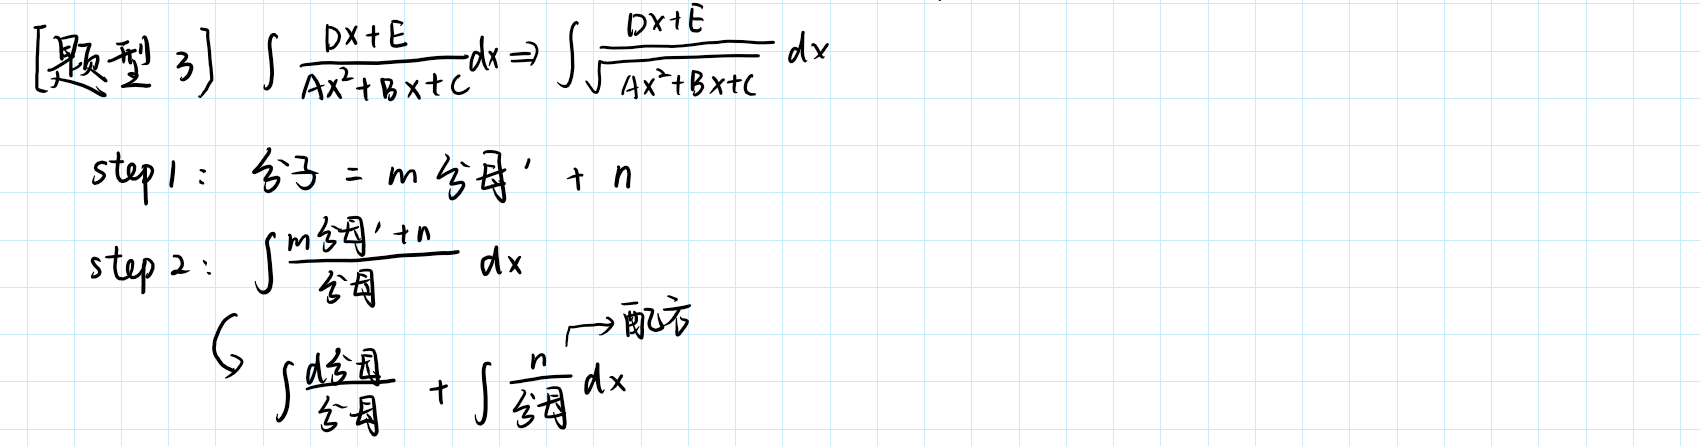 [题型 3] ∫ (Dx+E)/(Ax²+Bx+C) dx ⇒ ∫ (Dx+E)/√(Ax²+Bx+C) dx
step 1: 分子 = m 分母' + n
step 2: ∫ (m分母'+n)/分母 dx
→配方
∫ d分母/分母 + ∫ n/分母 dx